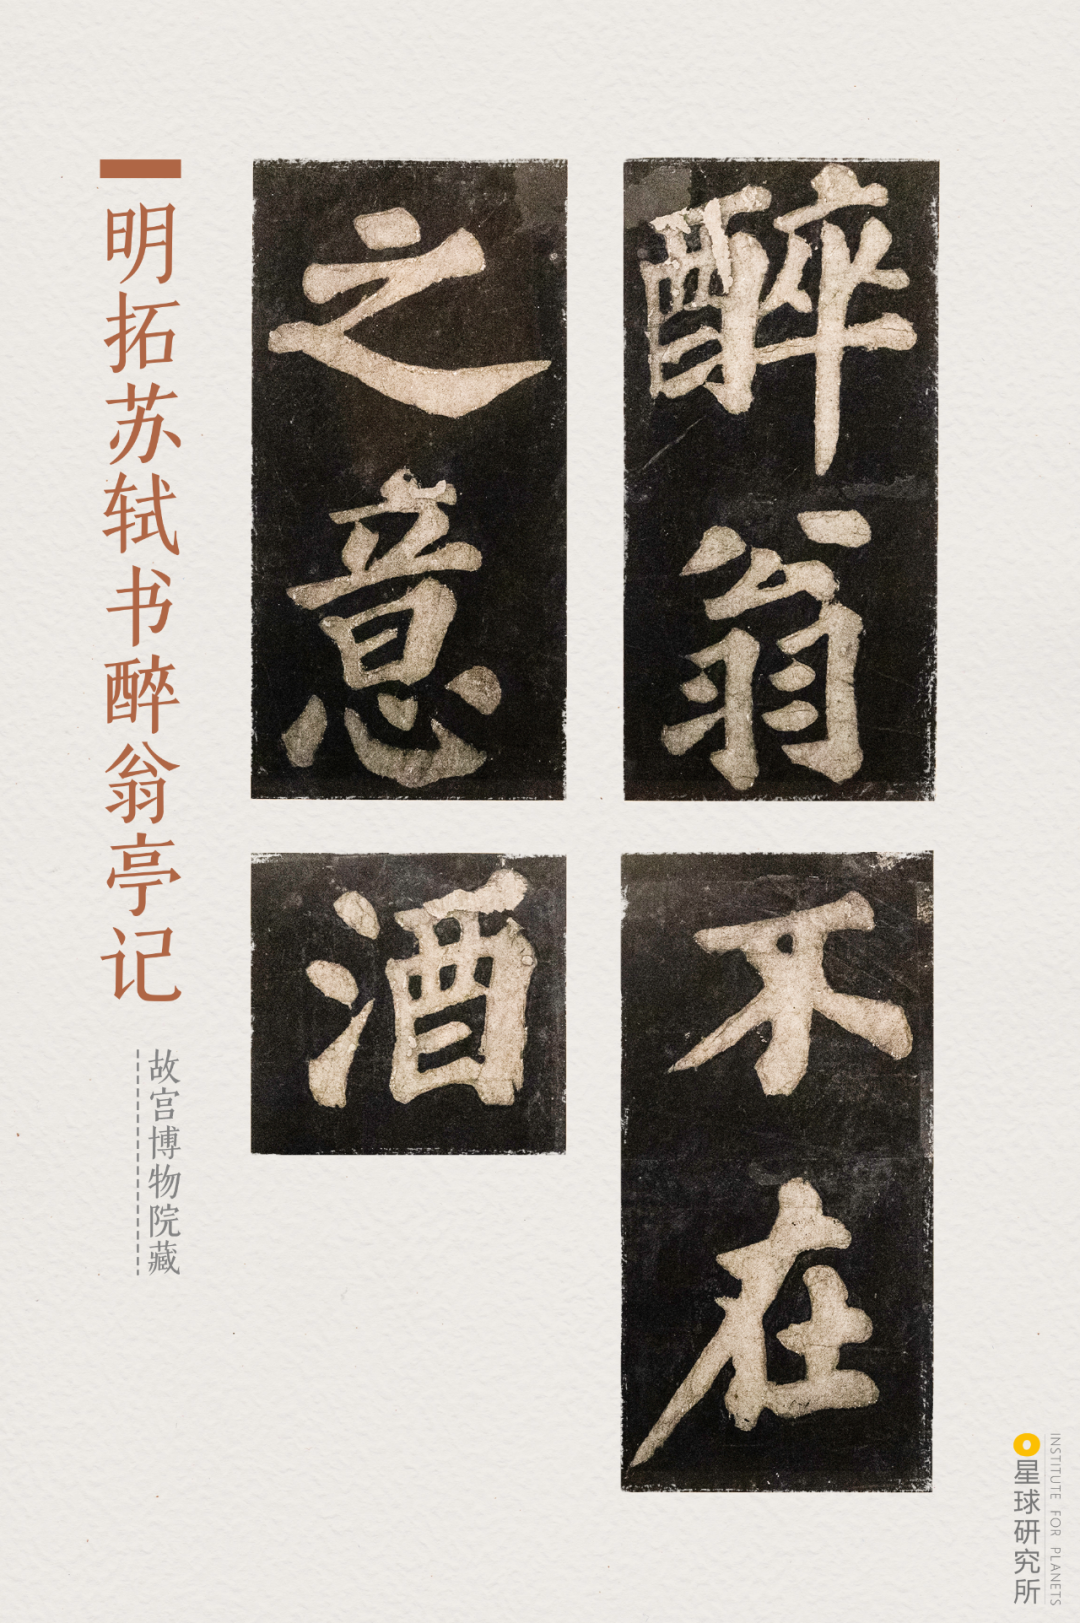 醉翁
之意
不在
酒
明拓苏轼书醉翁亭记
故宫博物院藏
星球研究所
INSTITUTE FOR PLANETS